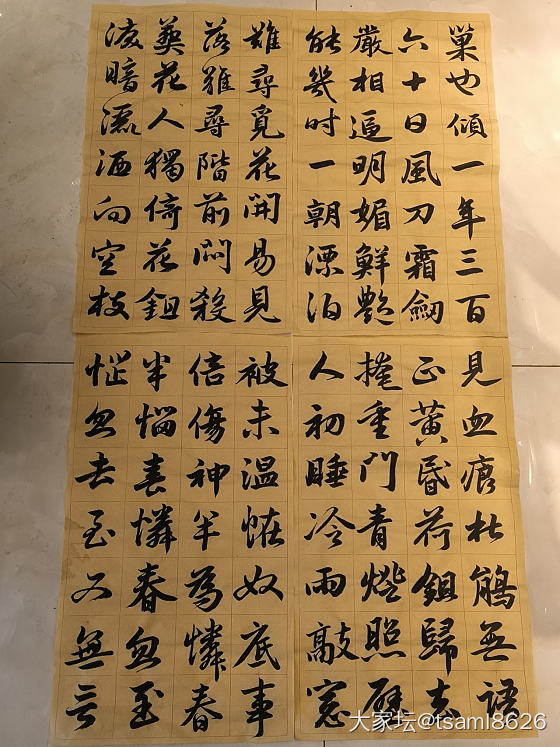 巢也傾一年三百
六十日風刀霜劍
嚴相逼明媚鮮艷
能幾時一朝漂泊
難尋覓花開易見
落難尋階前悶殺
葬花人獨倚花鉏
淚暗灑洒向空枝
見血痕杜鵑无語
正黃昏荷鉏歸去
掩重門青燈照壁
人初睡冷雨敲窓
被未溫怪奴底事
倍傷神半為憐春
半惱春憐春忽至
惱忽去至又無言
大家坛@tsaml8626